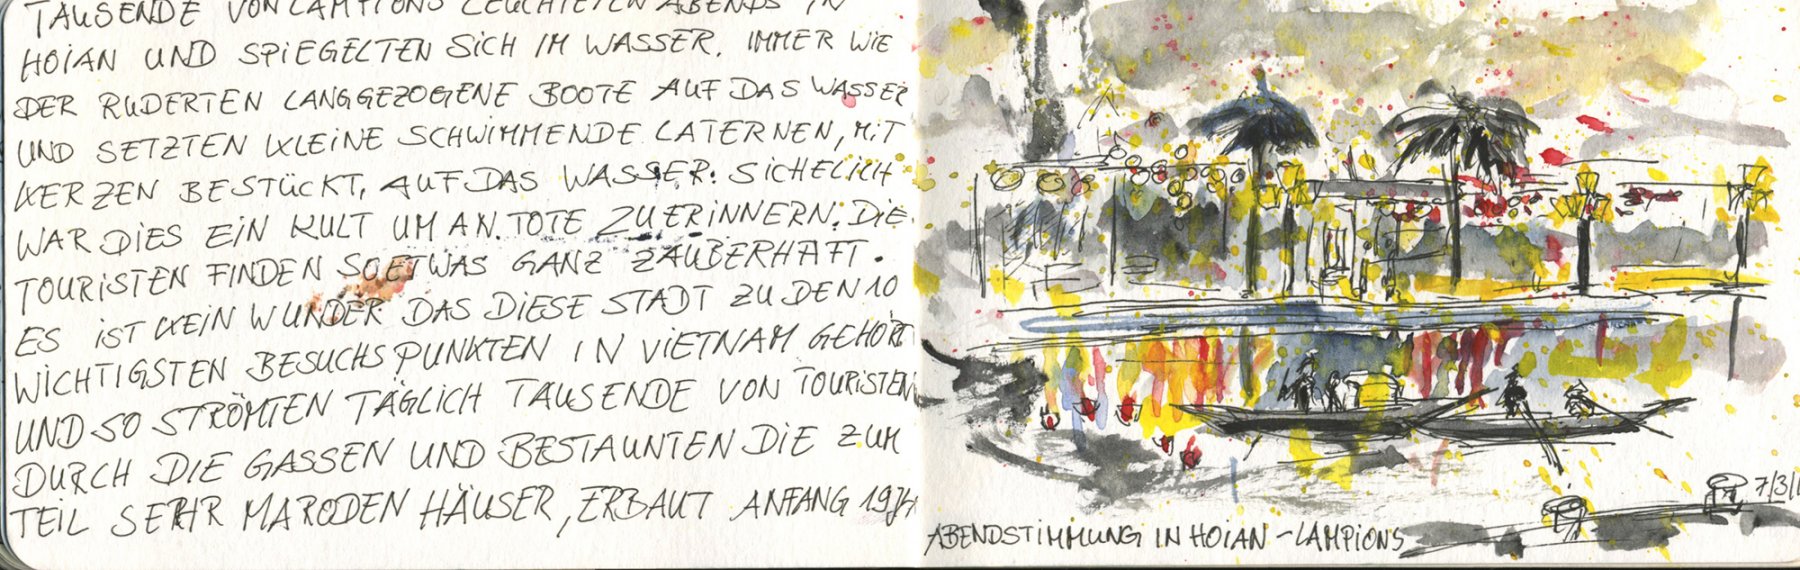 TAUSENDE VON LAMPIONS LEUCHTETEN ABENDS IN
HOIAN UND SPIEGELTEN SICH IM WASSER. IMMER WIE
DER RUDERTEN LANGGEZOGENE BOOTE AUF DAS WASSER
UND SETZTEN KLEINE SCHWIMMENDE LATERNEN, MIT
KERZEN BESTÜCKT, AUF DAS WASSER. SICHELICH
WAR DIES EIN KULT UM AN TOTE ZU ERINNERN. DIE
TOURISTEN FINDEN SO ETWAS GANZ ZAUBERHAFT.
ES IST KEIN WUNDER DAS DIESE STADT ZU DEN 10
WICHTIGSTEN BESUCHSPUNKTEN IN VIETNAM GEHÖRT
UND SO STRÖMTEN TÄGLICH TAUSENDE VON TOURISTEN
DURCH DIE GASSEN UND BESTAUNTEN DIE ZUM
TEIL SEHR MARODEN HÄUSER, ERBAUT ANFANG
ABENDSTIMMUNG IN HOIAN - LAMPIONS
7/3/